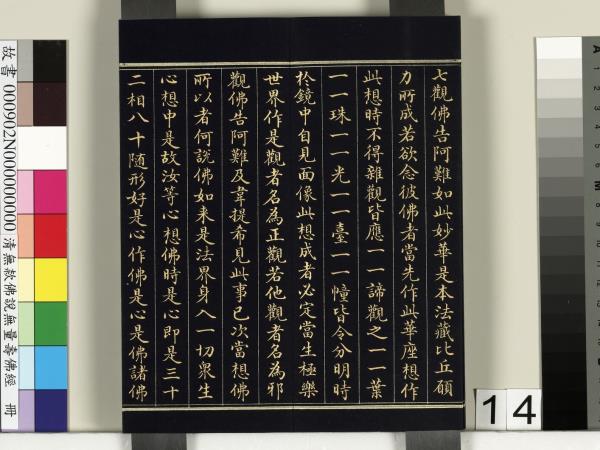 七觀佛告阿難如此妙華是本法藏比丘願
力所成若欲念彼佛者當先作此華座想作
此想時不得雜觀皆應一一諦觀之一一葉
一一珠一一光一一臺一一幢皆令分明時
於鏡中自見面像此想成者必定當生極樂
世界作是觀者名為正觀若他觀者名為邪
觀佛告阿難及韋提希見此事已次當想佛
所以者何說佛如來是法界身入一切眾生
心想中是故汝等心想佛時是心即是三十
二相八十隨形好是心作佛是心是佛諸佛
故書 000902N000000000 清無款佛說無量壽佛經 冊
14